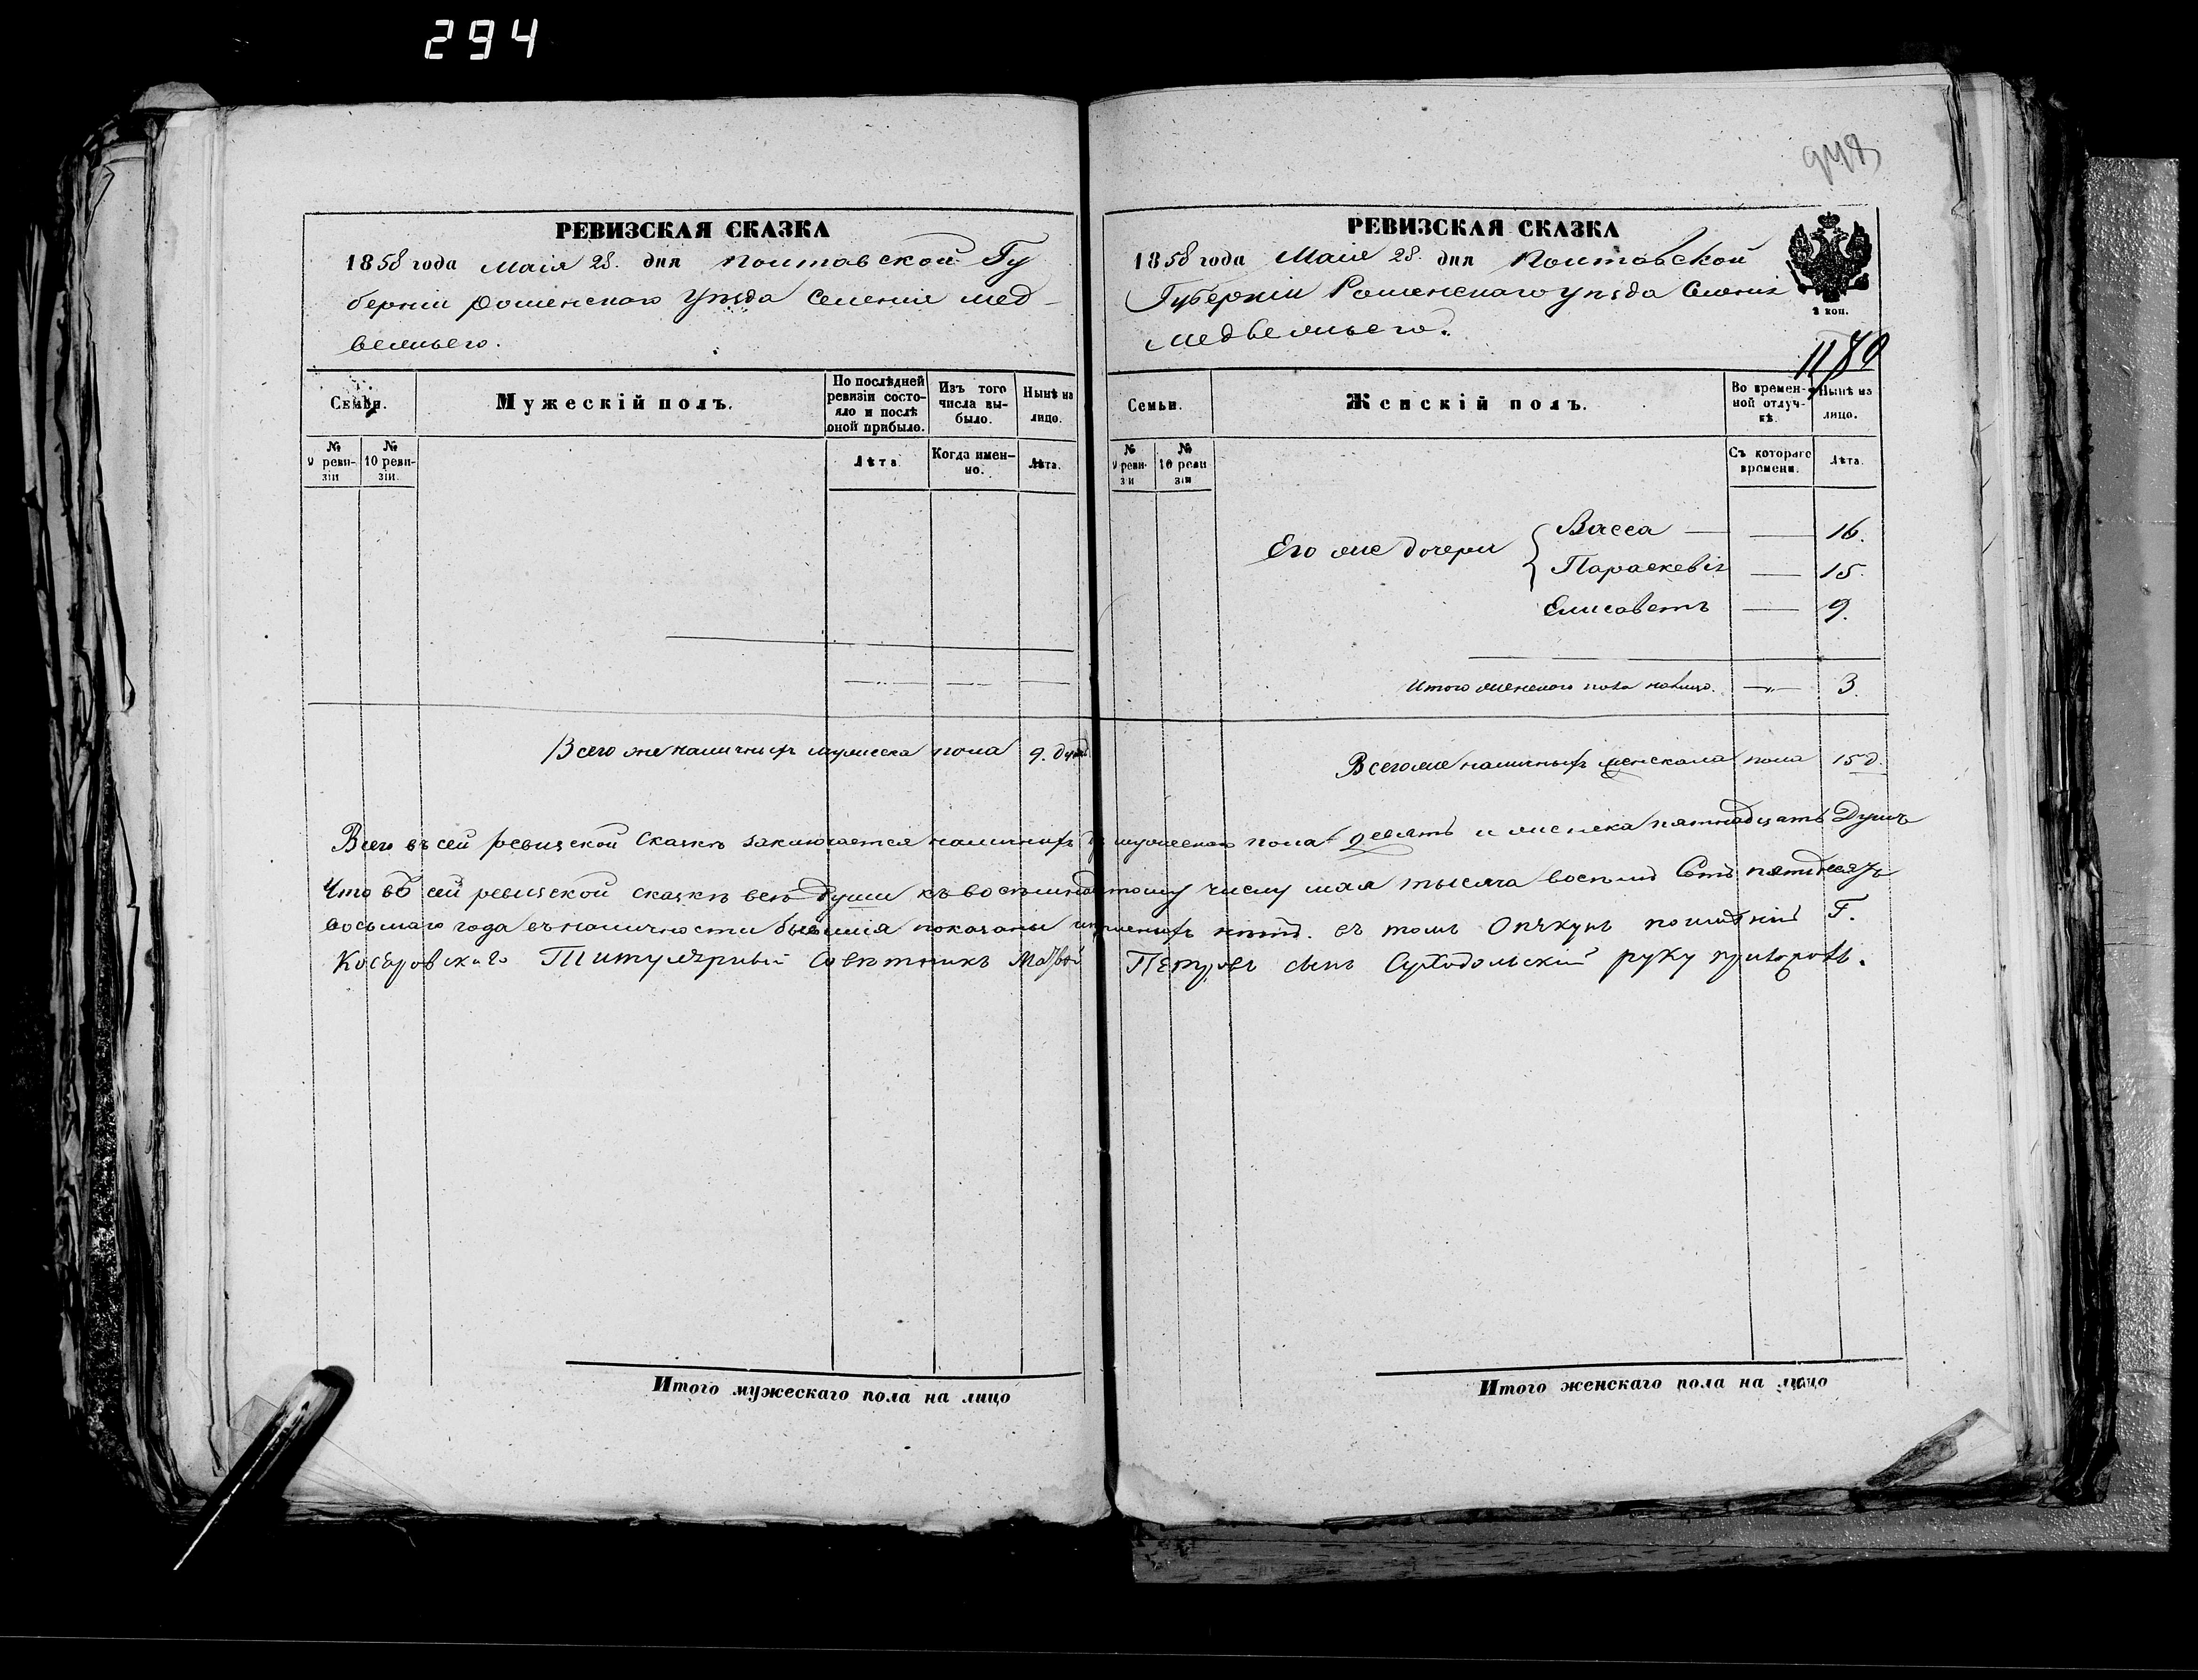 294
948
РЕВИЗСКАЯ СКАЗКА
1858 года Маія 28. дня Полтавской Гу
берніи Роменского уѣзда Селенія мед-
вежьего.
Семьи.
Мужескій полъ.
По послѣдней ревизіи состояло и послѣ оной прибыло.
Изъ того числа выбыло.
Нынѣ на лицо.
№ 9 ревизіи
№ 10 ревизіи.
Лѣта
Когда именно.
Лѣта.
Всего же наличныхъ мужеска пола 9. душъ
РЕВИЗСКАЯ СКАЗКА
1858 года Маія 28. дня Полтавской
Губерніи Роменскаго уѣзда Селенія
медвежьего.
2 коп.
1180
Семьи.
Женскій полъ.
Во временной отлучкѣ.
Нынѣ на лицо.
№ 9 ревизіи
№ 10 ревизіи
Съ котораго времени.
Лѣта.
Его же дочери
Васса — — 16.
Параскевія — 15.
Елисаветъ — 9.
Итого женского пола налицо. —„— 3.
Всего же наличныхъ женскаго пола 15 д.
Всего въ сей ревизской сказкѣ заключается наличныхъ мужескаго пола девять и женска пятнадцать Душъ
Что въ сей ревизской сказкѣ всѣ души къ восемнадцатому числу мая тысяча восемь Сотъ пятьдесятъ
восьмаго года въ наличности бывшія показаны и нѣтъ. въ томъ Опѣкунъ имѣнія Г.
Титулярный Совѣтникъ Матвѣй Петровъ сынъ Суходольскій руку приложилъ.
Итого мужескаго пола на лицо
Итого женскаго пола на лицо